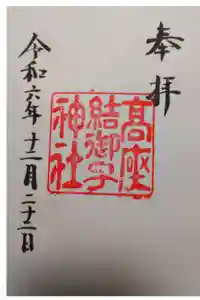 奉拝
高座
結御子
神社
令和六年十二月二十二日